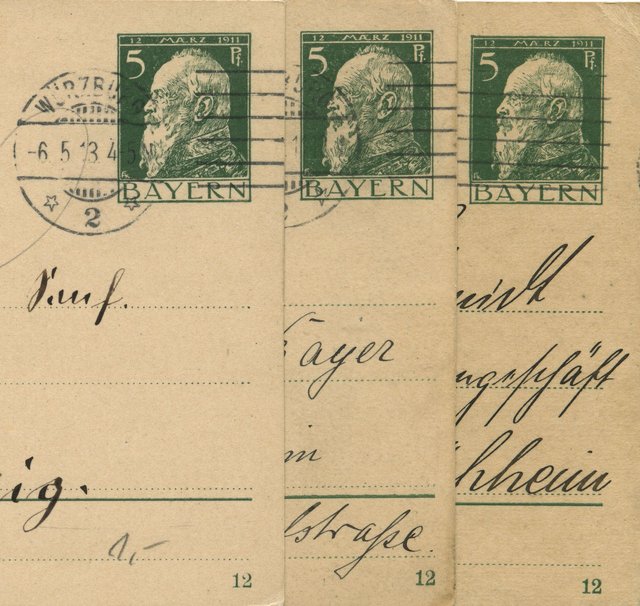 12 MÄRZ 1911
5 Pf.
BAYERN
WÜRZBURG
-6.5.13.4-5N
2
Sauf.
ig.
1,-
12
12 MÄRZ 1911
5 Pf.
BAYERN
ayer
im
lstraße.
12
12 MÄRZ 1911
5 Pf.
BAYERN
midt
ngsschäft
hheim
12